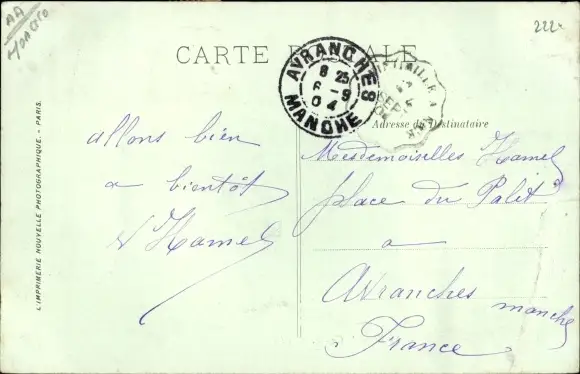 AA
MONACO
222.
CARTE POSTALE
AVRANCHES
8 25
6 - 9
04
MANCHE
SEPT
04
Adresse du Destinataire
L'IMPRIMERIE NOUVELLE PHOTOGRAPHIQUE. - PARIS.
allons bien
a bientôt
Hamel
Mesdemoiselles Hamel
place du Palet
a
Avranches manche
France